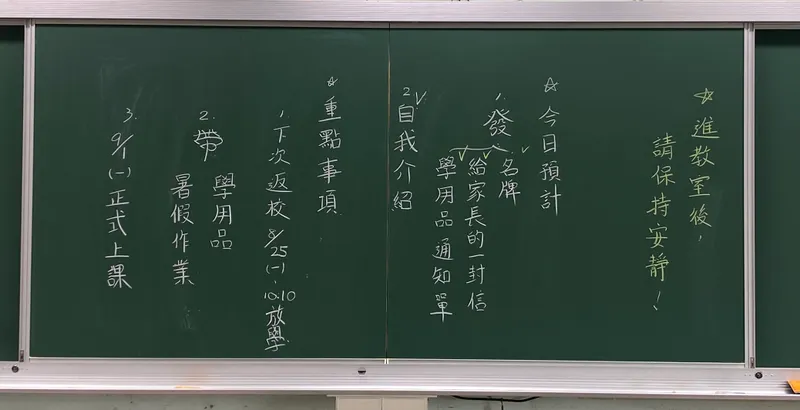 ☆進教室後,
請保持安靜!
☆今日預計
1.發
名牌
給家長的一封信
學用品通知單
2.自我介紹
☆重點事項
1.下次返校8/25(一),10:10放學
2.帶
學用品
暑假作業
3.9/1(一)正式上課